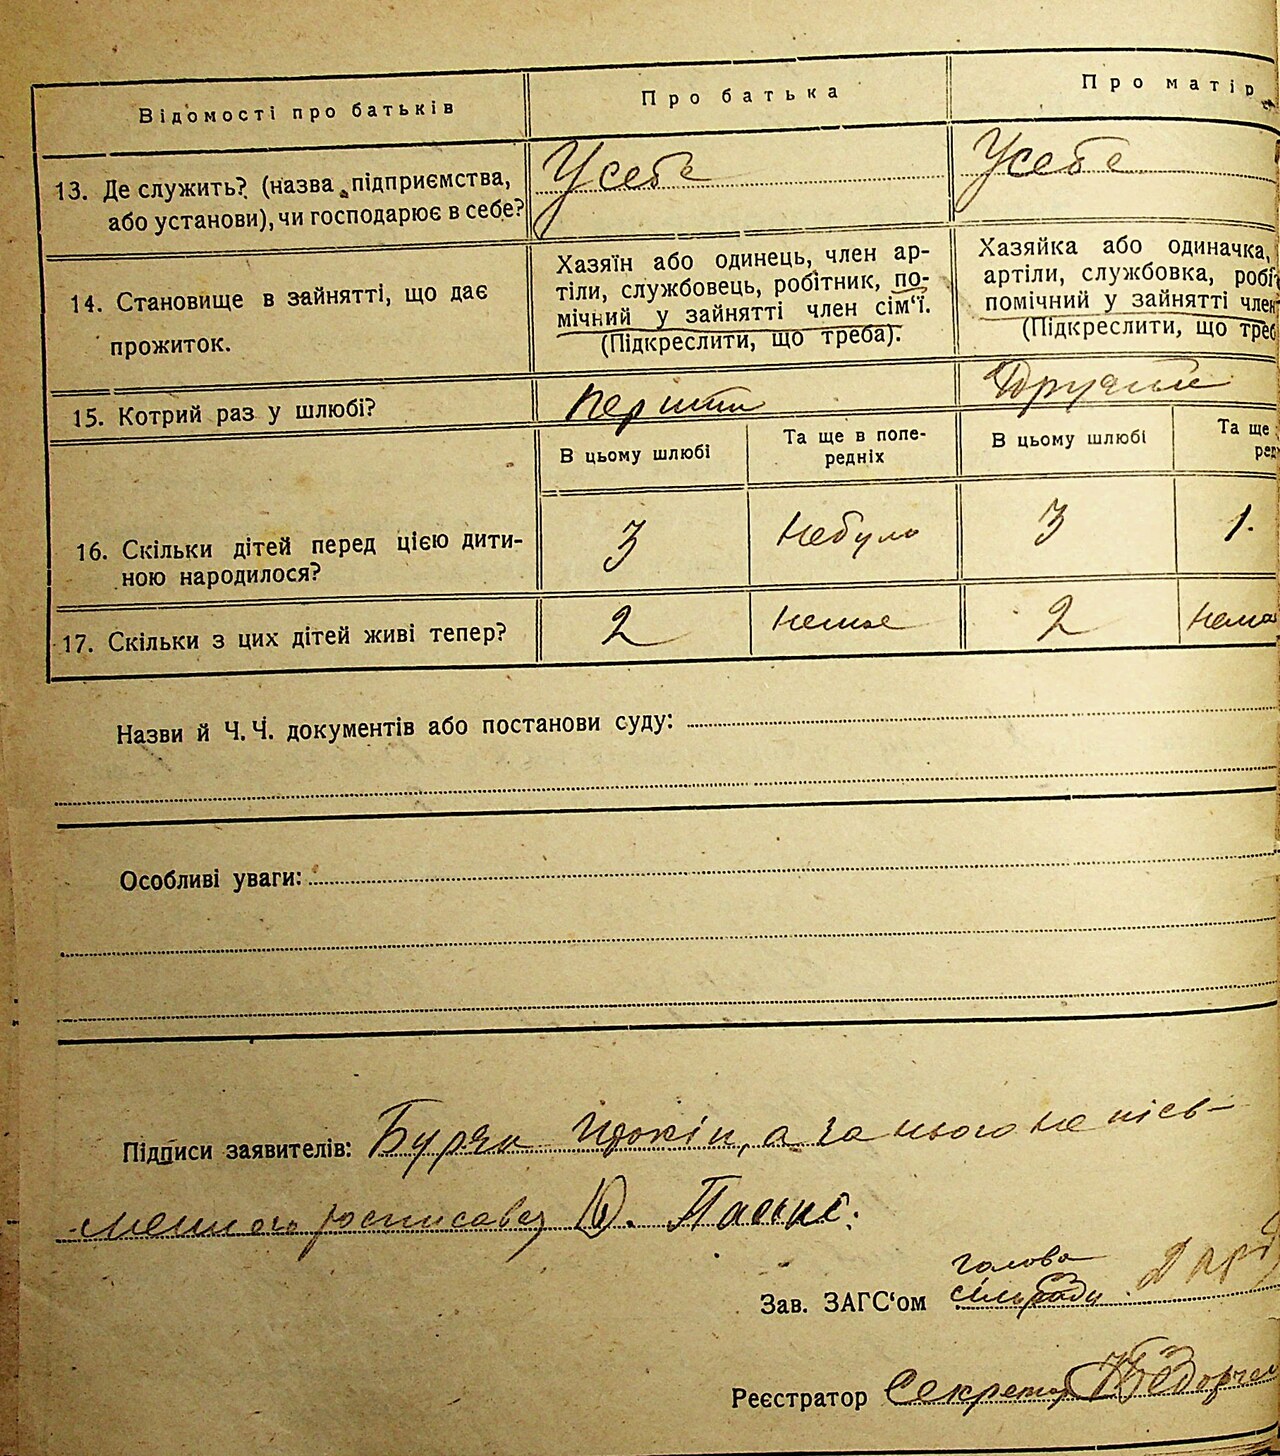 Відомості про батьків
Про батька
Про матір
13. Де служить? (назва підприємства,
або установи), чи господарює в себе?
Усебе
Усебе
14. Становище в зайнятті, що дає
прожиток.
Хазяїн або одинець, член ар-
тіли, службовець, робітник, по-
мічний у зайнятті член сім‘ї.
(Підкреслити, що треба).
Хазяйка або одиначка,
артіли, службовка, робі
помічний у зайнятті член
(Підкреслити, що треб
15. Котрий раз у шлюбі?
Перший
Другий
В цьому шлюбі
Та ще в попе-
редніх
В цьому шлюбі
Та ще
ред
16. Скільки дітей перед цією дити-
ною народилося?
3
Небуло
3
1.
17. Скільки з цих дітей живі тепер?
2
Немає
2
Нема
Назви й Ч. Ч. документів або постанови суду:
Особливі уваги:
Підписи заявителів: Буряк а за нього не пісь-
менного росписавсь
голова
Зав. ЗАГС‘ом сільради
Реєстратор Секретар